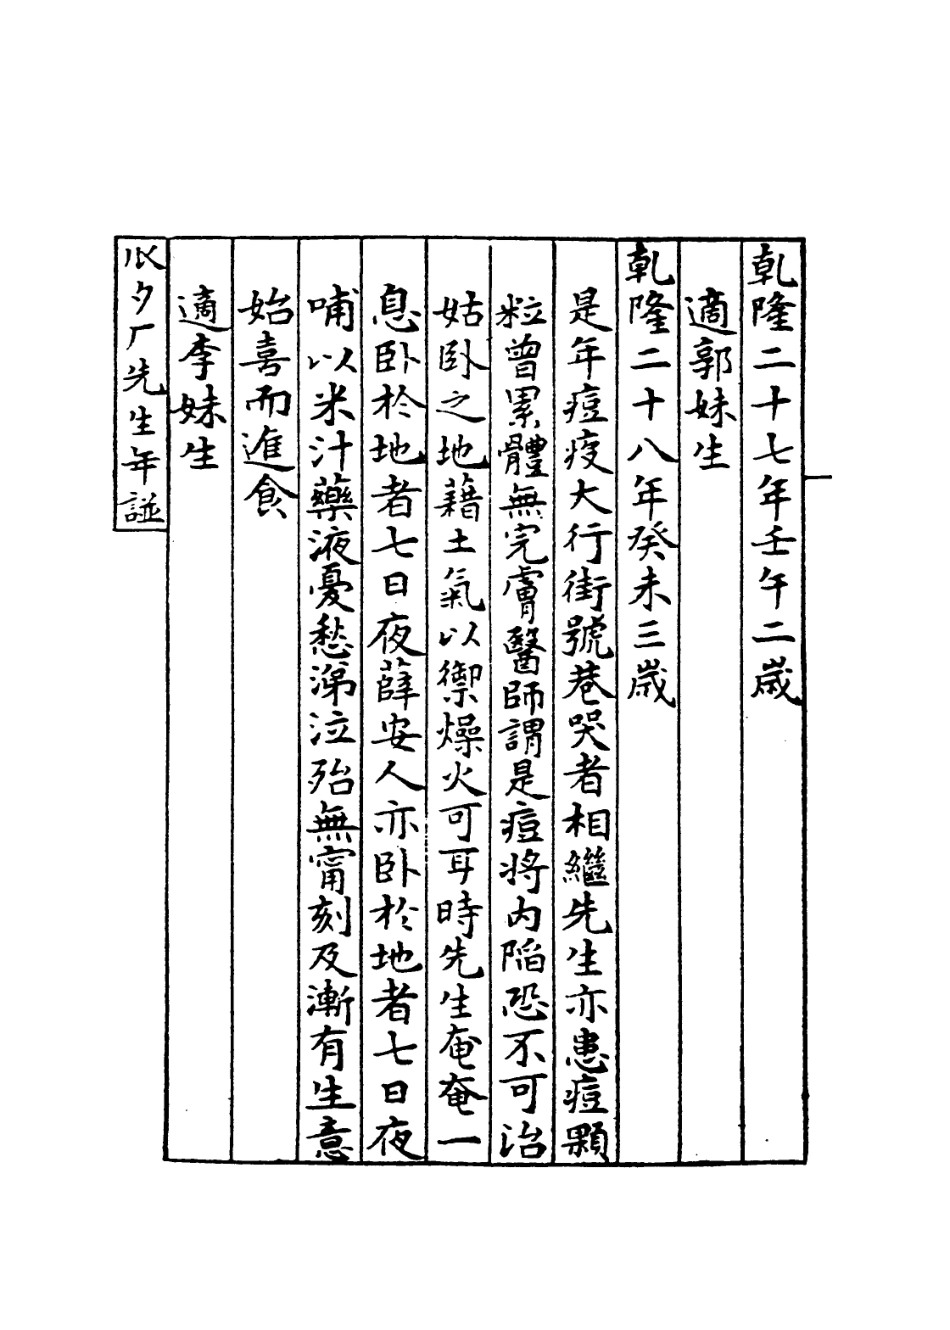 乾隆二十七年壬午二歲
適郭妹生
乾隆二十八年癸未三歲
是年痘疫大行街號巷哭者相繼先生亦患痘顆
粒曾累體無完膚醫師謂是痘將內陷恐不可治
姑卧之地藉土氣以禦燥火可耳時先生奄奄一
息卧於地者七日夜薛安人亦卧於地者七日夜
哺以米汁藥液憂愁涕泣殆無甯刻及漸有生意
始喜而進食
適李妹生
瓜夕厂先生年譜